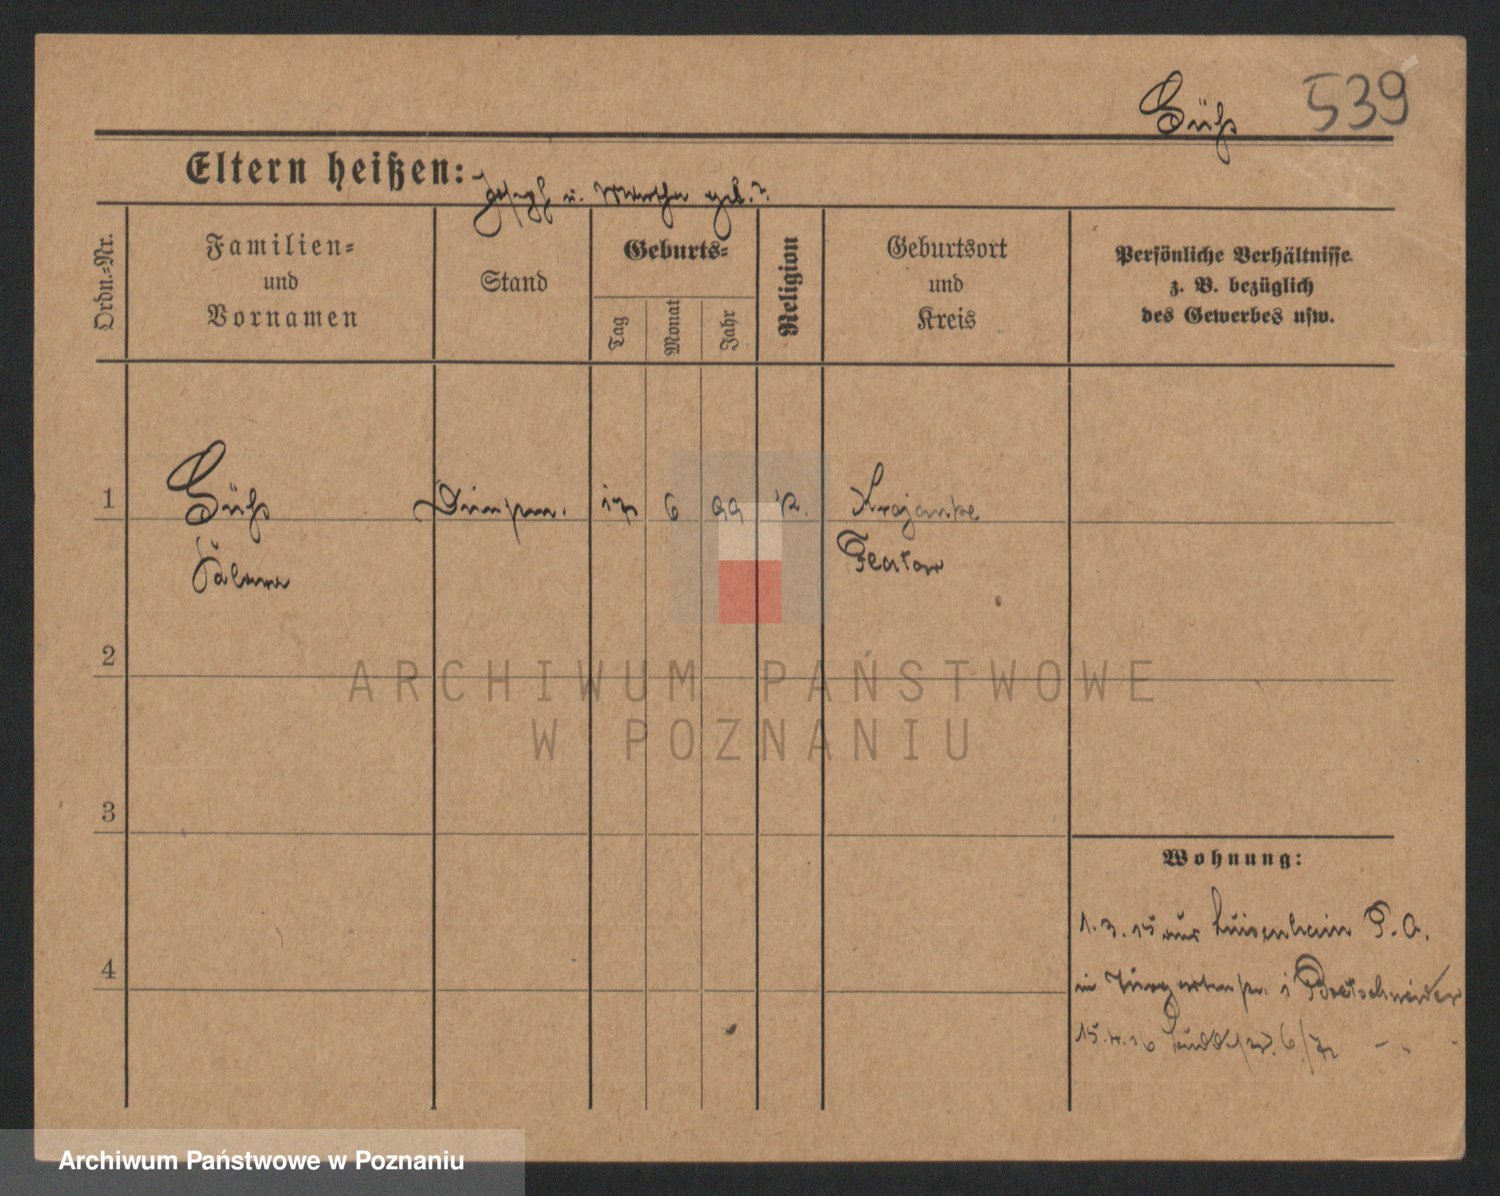 Süß 539
Eltern heißen: Joseph u. Martha geb. ?
Ordn.-Nr.
Familien-
und
Vornamen
Stand
Geburts-
Tag
Monat
Jahr
Religion
Geburtsort
und
Kreis
Persönliche Verhältnisse
z. B. bezüglich
des Gewerbes usw.
1 Süß 6 99 Krojanke
Flatow
2
3
4
Wohnung:
1.3.15 aus Luisenhain P. O.
in Bretschneider
15.4.16
ARCHIWUM PAŃSTWOWE
W POZNANIU
Archiwum Państwowe w Poznaniu